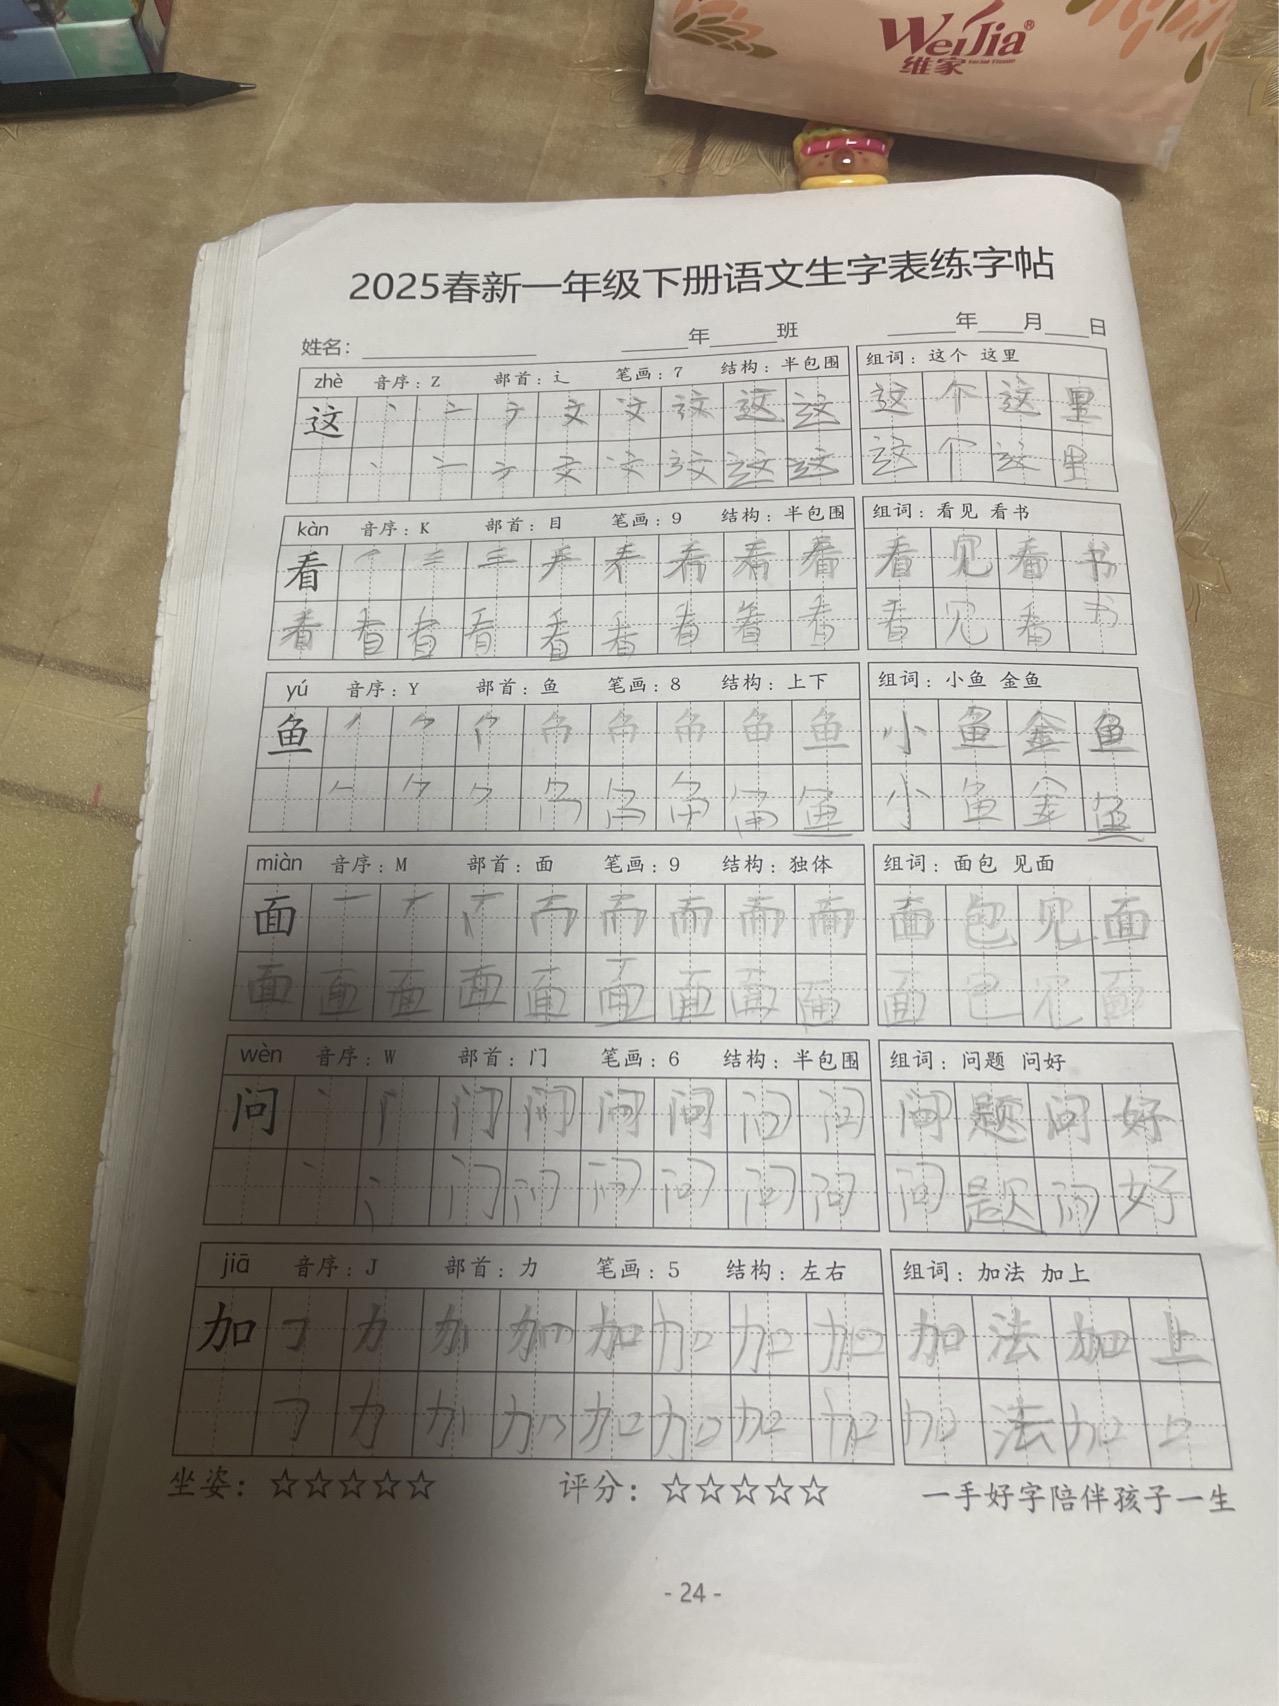 WeiJia®
维家 Facial Tissue
2025春新一年级下册语文生字表练字帖
姓名：____________ ____年____班 ____年___月___日
zhè 音序：Z 部首：辶 笔画：7 结构：半包围 组词：这个 这里
这 丶 亠 ナ 文 文 这 这 这 这 个 这 里
这 这 这 个 这 里
kàn 音序：K 部首：目 笔画：9 结构：半包围 组词：看见 看书
看 看 见 看 书
看 看 看 看 看 看 看 看 看 看 见 看 书
yú 音序：Y 部首：鱼 笔画：8 结构：上下 组词：小鱼 金鱼
鱼 鱼 小 鱼 金 鱼
鱼 小 鱼 金 鱼
miàn 音序：M 部首：面 笔画：9 结构：独体 组词：面包 见面
面 面 包 见 面
面 面 面 面 面 面 面 面 面 面 包 见 面
wèn 音序：W 部首：门 笔画：6 结构：半包围 组词：问题 问好
问 丶 门 问 问 问 问 问 问 题 问 好
门 问 问 问 问 问 问 题 问 好
jiā 音序：J 部首：力 笔画：5 结构：左右 组词：加法 加上
加 力 加 加 加 加 加 法 加 上
力 加 加 加 加 加 法 加
坐姿：☆☆☆☆☆ 评分：☆☆☆☆☆ 一手好字陪伴孩子一生
- 24 -